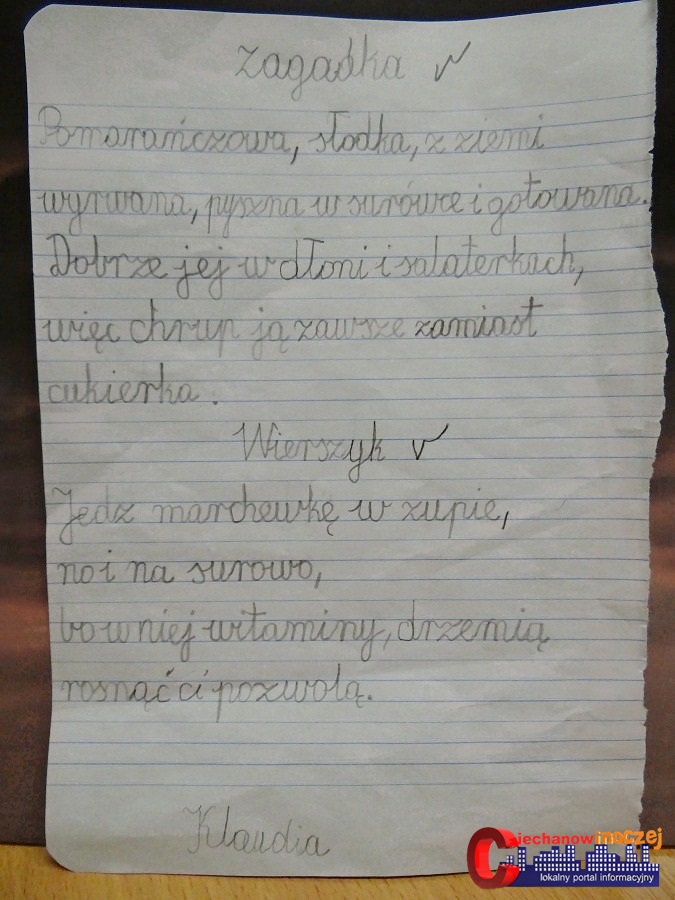 Zagadka ✓
Pomarańczowa, słodka, z ziemi
wyrwana, pyszna w surówce i gotowana.
Dobrze jej w dłoni i salaterkach,
więc chrup ją zawsze zamiast
cukierka.
Wierszyk ✓
Jedz marchewkę w zupie,
no i na surowo,
bo w niej witaminy, drzemią
rosnąć ci pozwolą.
Klaudia
Ciechanow inaczej
lokalny portal informacyjny